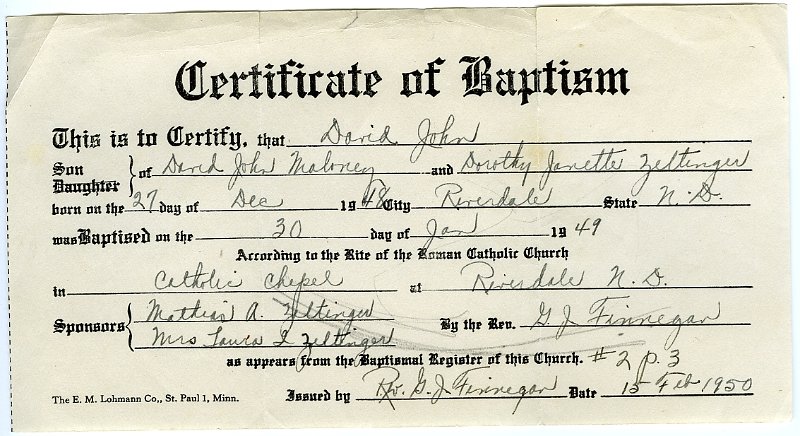 Certificate of Baptism
This is to Certify, that David John
Son
Daughter } of David John Maloney and Dorothy Janette Zeltinger
born on the 27 day of Dec 1948 City Riverdale State N.D.
was Baptised on the 30 day of Jan 1949
According to the Rite of the Roman Catholic Church
in Catholic Chepel at Riverdale N.D.
Sponsors { Mathias A. Zeltinger
Mrs Laura I Zeltinger
By the Rev. G J Finnegan
as appears from the Baptismal Register of this Church. #2 p.3
Issued by Rev. G.J. Finnegan Date 15 Feb 1950
The E. M. Lohmann Co., St. Paul 1, Minn.